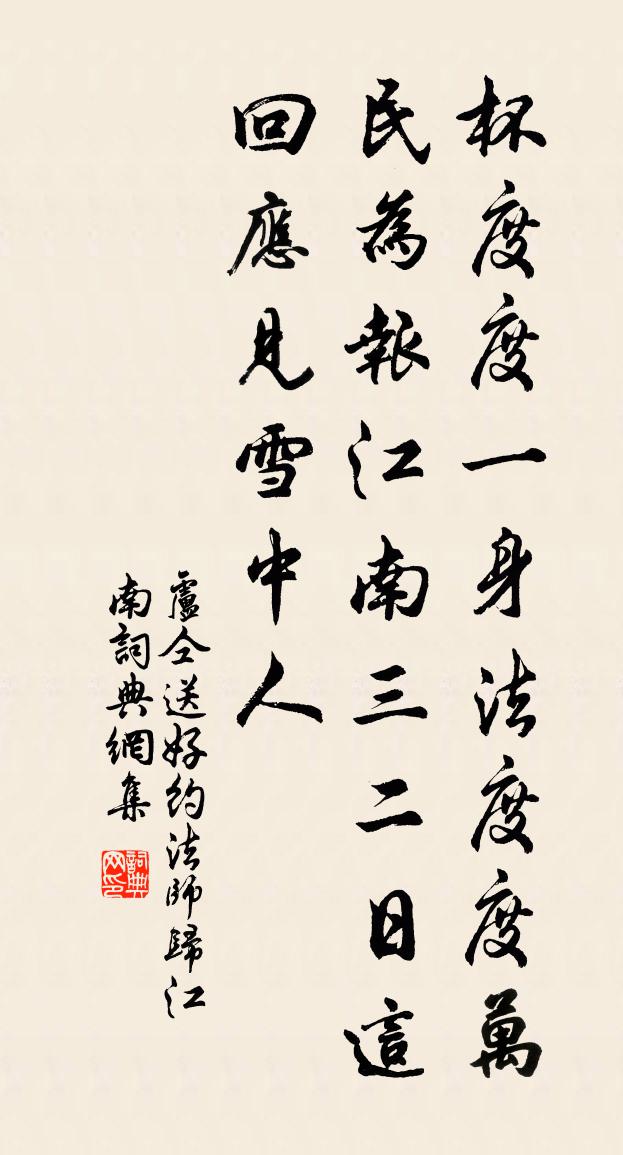 杯度度一身法度度萬
民為報江南三二日這
回應見雪中人
盧仝送好約法師歸江
南詞典網集
詞典网印